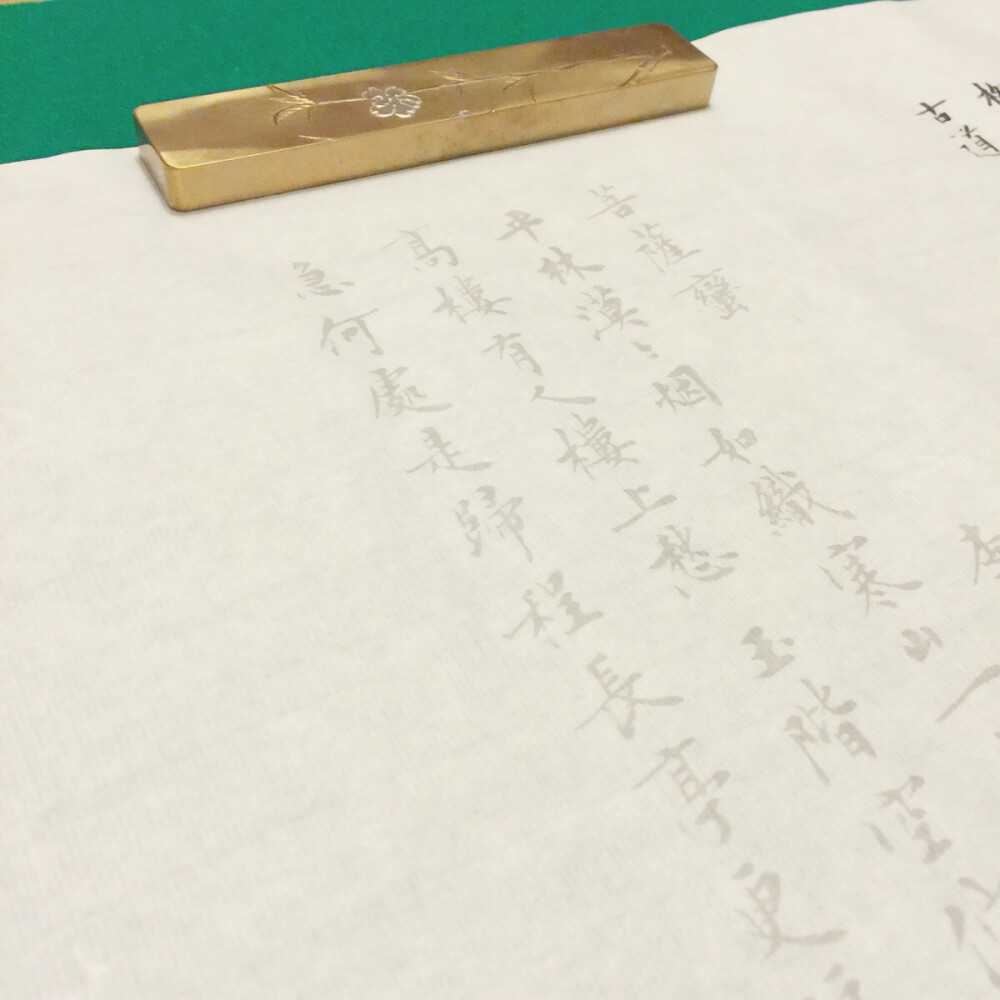 古道
菩薩蠻
平林漠〻烟如織寒山一
高樓有人樓上愁玉階空佇
急何處是歸程長亭更